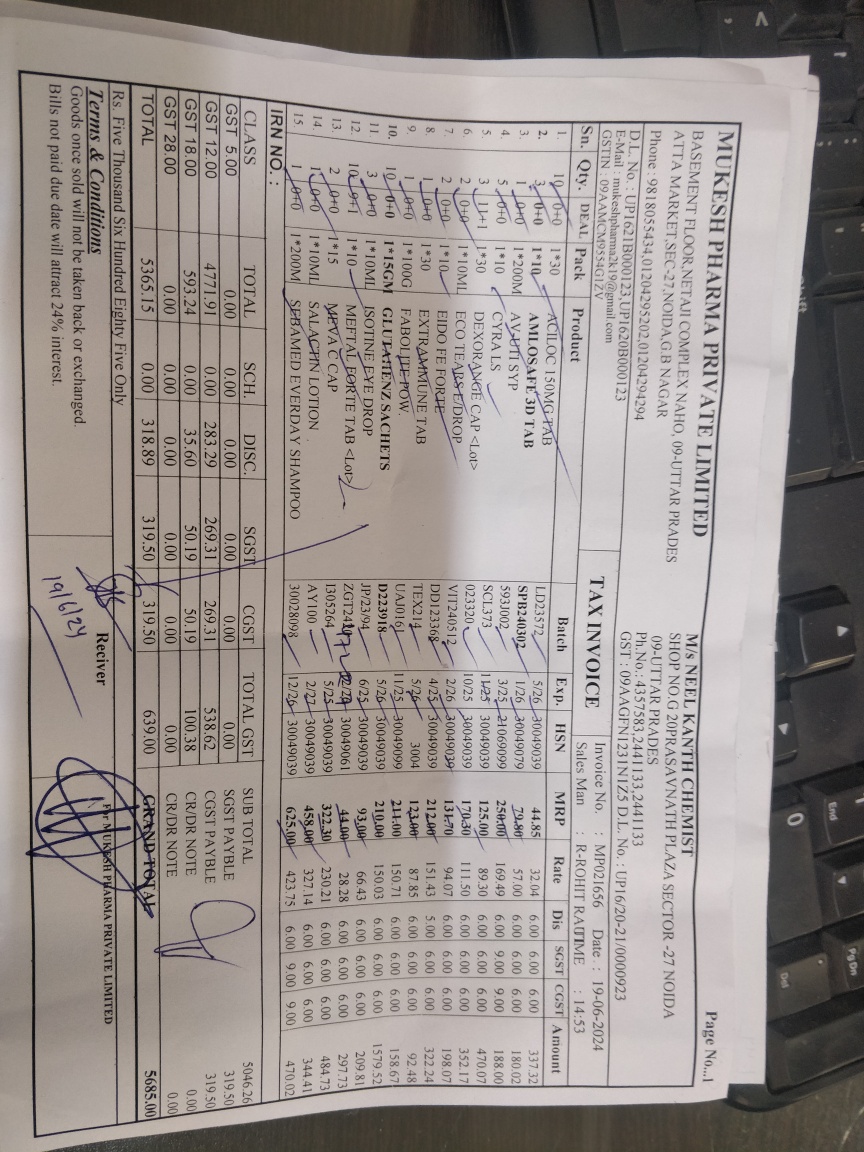 Page No...1
MUKESH PHARMA PRIVATE LIMITED
BASEMENT FLOOR,NETAJI COMPLEX NAHO, 09-UTTAR PRADES
ATTA MARKET,SEC-27,NOIDA,G.B NAGAR
Phone : 9818055434,01204295202,01204294294
D.L. No. : UP1621B000123,UP1620B000123
E-Mail : mukeshpharma2k19@gmail.com
GSTIN : 09AAMCM9554G1ZV
M/s NEEL KANTH CHEMIST
SHOP NO.G 20PRASAVNATH PLAZA SECTOR -27 NOIDA
09-UTTAR PRADES
Ph.No.: 4357583,2441133,2441133
GST : 09AAGFN1231N1Z5 D.L. No.: UP16/20-21/0000923
TAX INVOICE
Invoice No. : MP021656 Date : 19-06-2024
Sales Man : R-ROHIT RAI TIME : 14:53
Sn. Qty. DEAL Pack Product Batch Exp. HSN MRP Rate Dis SGST CGST Amount
1. 10 0+0 1*30 ACILOC 150MG TAB LD23572 5/26 30049039 44.85 32.04 6.00 6.00 6.00 337.32
2. 3 0+0 1*10 AMLOSAFE 3D TAB SPB240302 1/26 30049079 79.80 57.00 6.00 6.00 6.00 180.02
3. 1 0+0 1*200M AV-UTI SYP 593J002 3/25 21069099 250.00 169.49 6.00 9.00 9.00 188.00
4. 5 0+0 1*10 CYRA LS SCL373 11/25 30049039 125.00 89.30 6.00 6.00 6.00 470.07
5. 3 11+1 1*30 DEXORANGE CAP <Lot> 023320 10/25 30049039 170.30 111.50 6.00 6.00 6.00 352.17
6. 2 0+0 1*10ML ECO TEARS E/DROP VIT240512 2/26 30049039 131.70 94.07 6.00 6.00 6.00 198.07
7. 2 0+0 1*10 EIDO FE FORTE DD123368 4/25 30049039 212.00 151.43 5.00 6.00 6.00 322.24
8. 1 0+0 1*30 EXTRAMMUNE TAB TEX214 5/26 3004 123.00 87.85 6.00 6.00 6.00 92.48
9. 1 0+0 1*100G FABOLITE POW. UAJ0161 11/25 30049099 211.00 150.71 6.00 6.00 6.00 158.67
10. 10 0+0 1*15GM GLUTAHENZ SACHETS D223918 5/26 30049039 210.00 150.03 6.00 6.00 6.00 1579.52
11. 3 0+0 1*10ML ISOTINE EYE DROP JP/23/94 6/25 30049039 93.00 66.43 6.00 6.00 6.00 209.81
12. 10 9+1 1*10 MEFTAL FORTE TAB <Lot> 30049061 44.00 28.28 6.00 6.00 6.00 297.73
13. 2 0+0 1*15 MEVA C CAP I305264 5/25 30049039 322.30 230.21 6.00 6.00 6.00 484.73
14. 1 0+0 1*10ML SALACTIN LOTION AY100 2/27 30049039 458.00 327.14 6.00 6.00 6.00 344.41
15. 1 0+0 1*200M SEBAMED EVERDAY SHAMPOO 30028098 12/26 30049039 625.00 423.75 6.00 9.00 9.00 470.02
IRN NO. :
CLASS TOTAL SCH. DISC. SGST CGST TOTAL GST
GST 5.00 0.00 0.00 0.00 0.00 0.00 0.00
GST 12.00 4771.91 0.00 283.29 269.31 269.31 538.62
GST 18.00 593.24 0.00 35.60 50.19 50.19 100.38
GST 28.00 0.00 0.00 0.00 0.00 0.00 0.00
TOTAL 5365.15 0.00 318.89 319.50 319.50 639.00
SUB TOTAL 5046.26
SGST PAYBLE 319.50
CGST PAYBLE 319.50
CR/DR NOTE 0.00
CR/DR NOTE 0.00
GRAND TOTAL 5685.00
Rs. Five Thousand Six Hundred Eighty Five Only
Terms & Conditions
Goods once sold will not be taken back or exchanged.
Bills not paid due date will attract 24% interest.
Reciver
19/6/24
For MUKESH PHARMA PRIVATE LIMITED
Shift
End
PgDn
Del
0